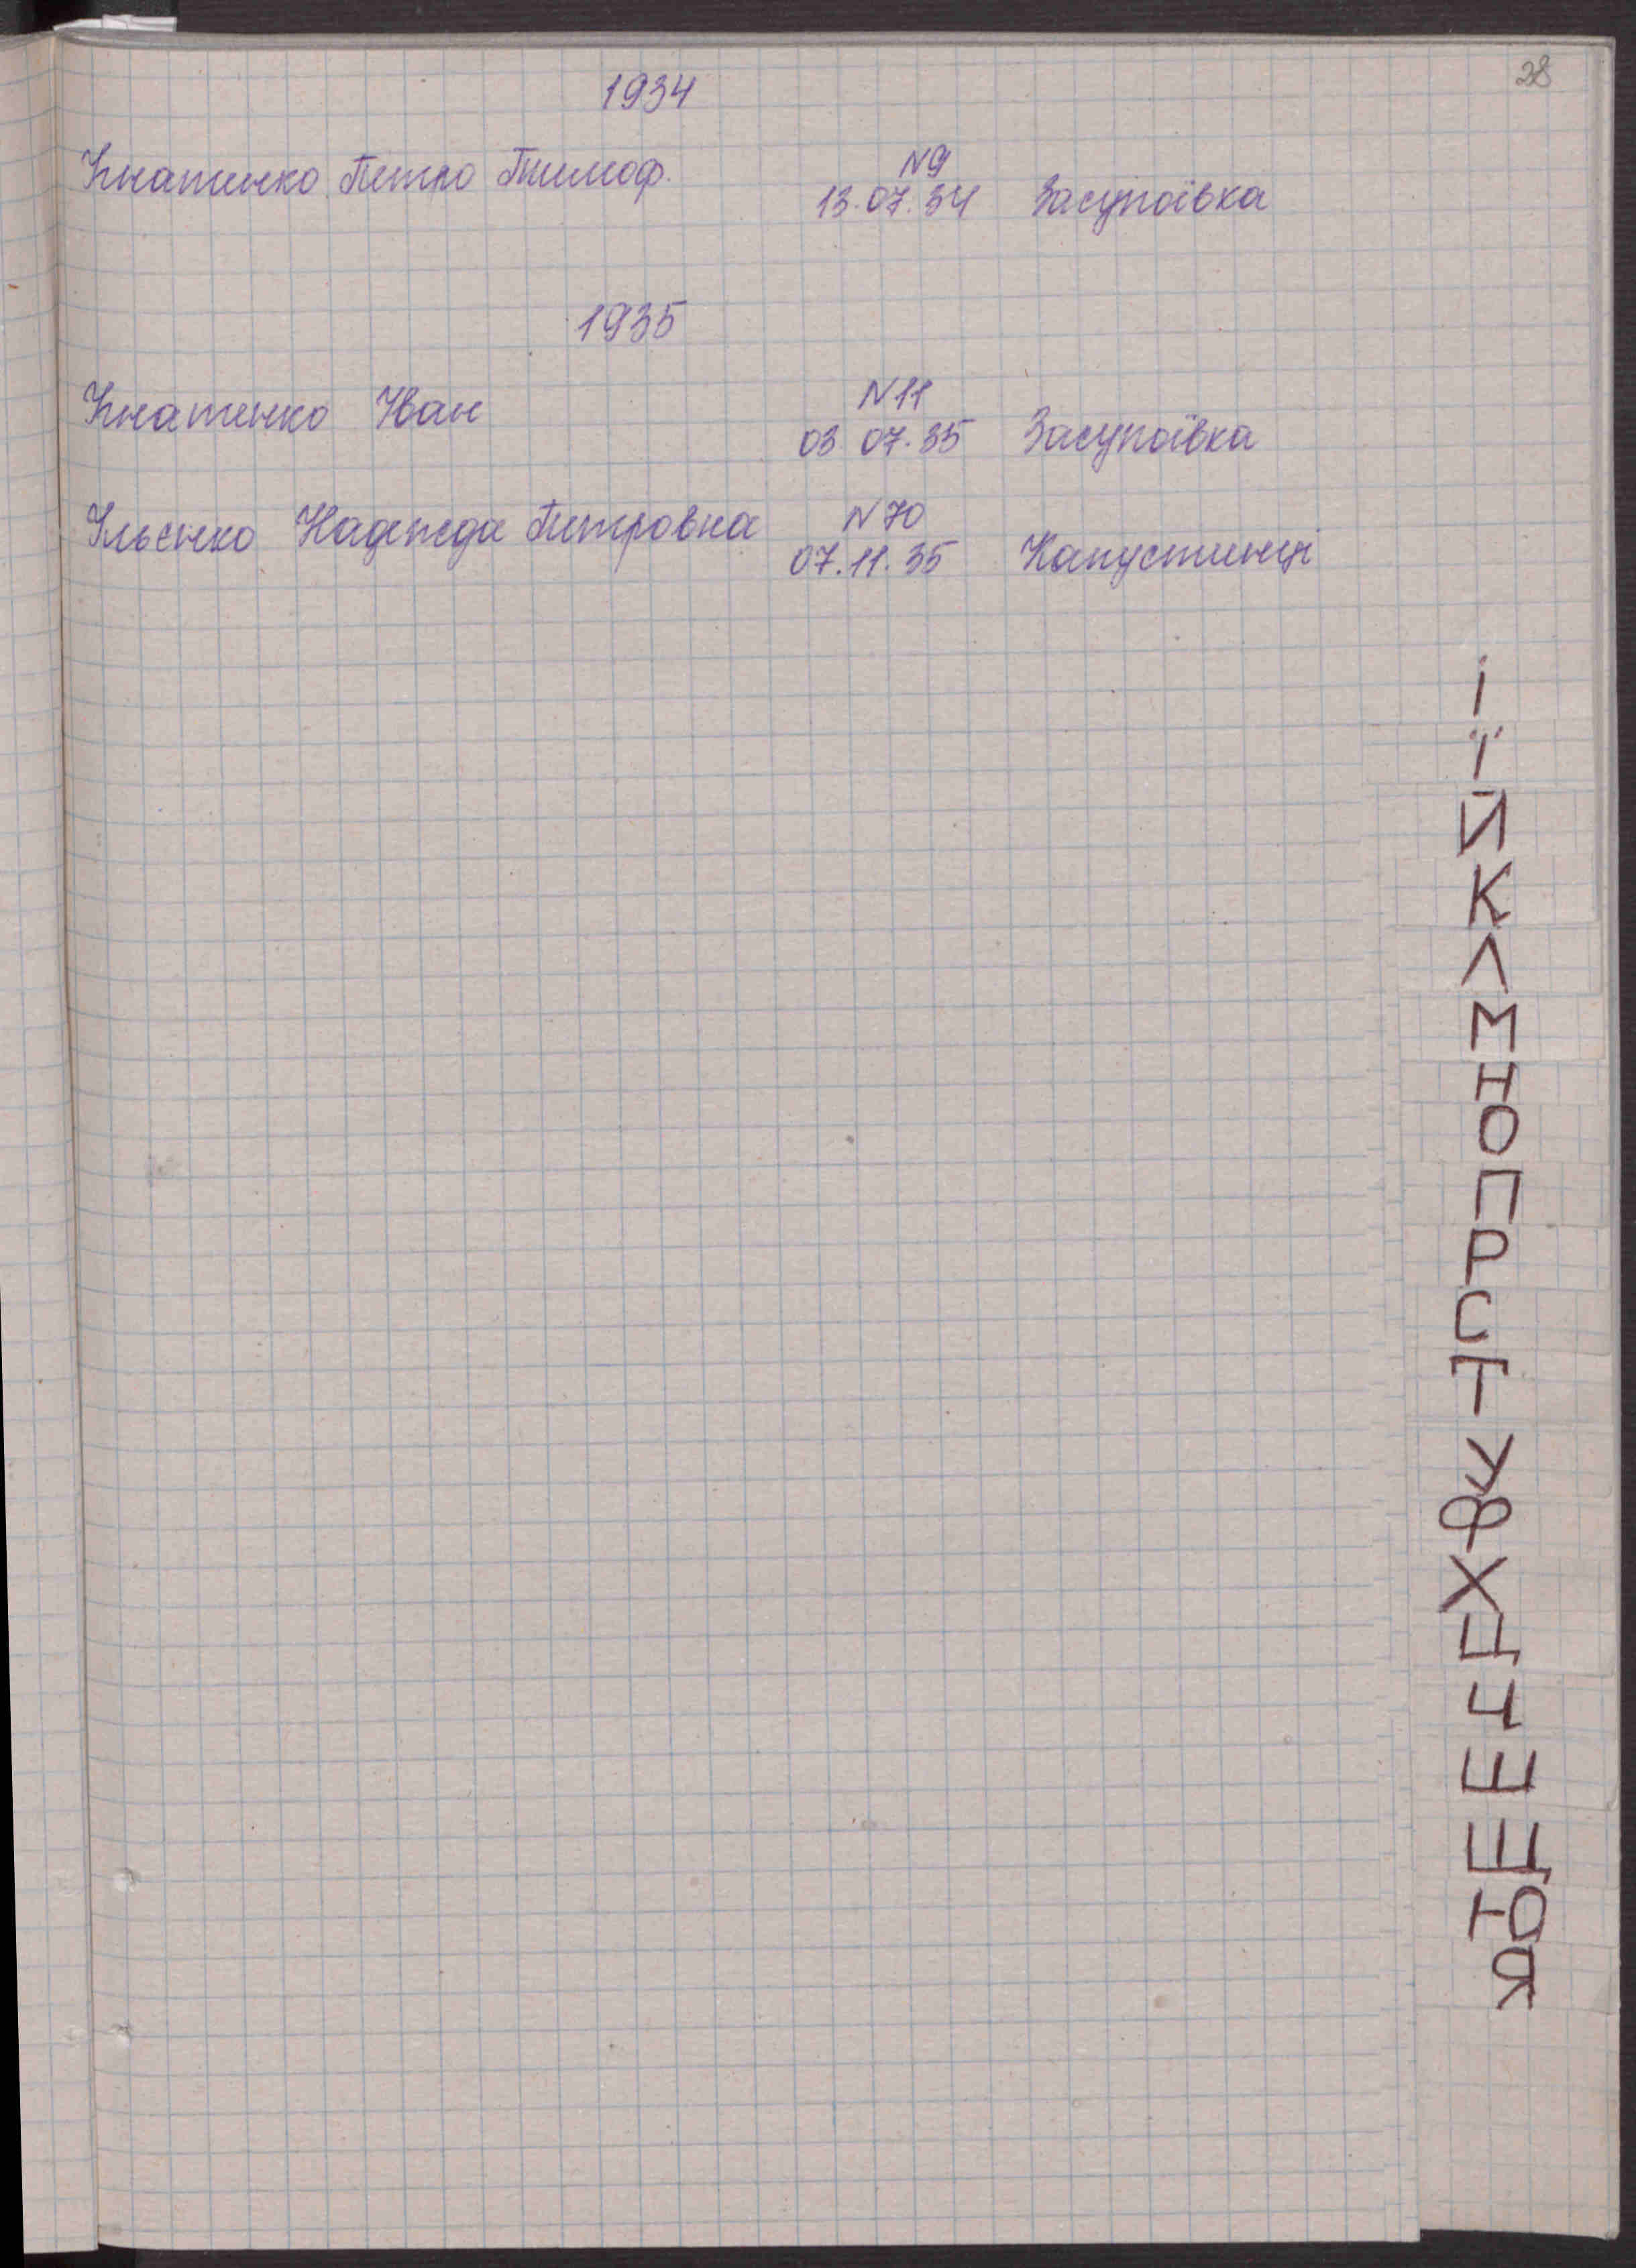 28
1934
Ігнатенко Петро Тимоф. N9
13.07.34 Засупоївка
1935
Ігнатенко Іван N11
03.07.35 Засупоївка
Ільєнко Надежда Петровна N70
07.11.35 Капустинці
І
Ї
Й
К
Л
М
Н
О
П
Р
С
Т
У
Ф
Х
Ц
Ч
Ш
Щ
Ю
Я